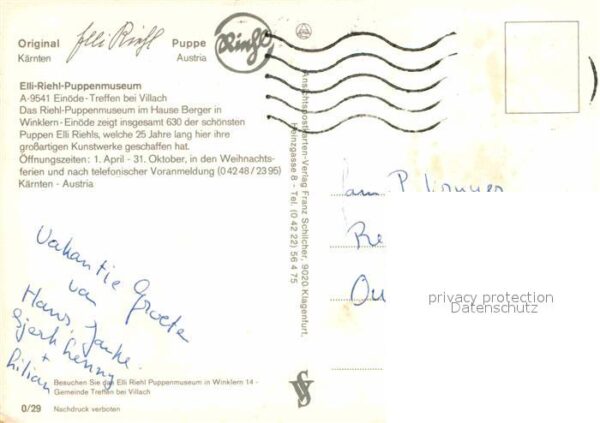 Original Elli Riehl Puppe Riehl
Kärnten Austria
Elli-Riehl-Puppenmuseum
A-9541 Einöde-Treffen bei Villach
Das Riehl-Puppenmuseum im Hause Berger in
Winklern-Einöde zeigt insgesamt 630 der schönsten
Puppen Elli Riehls, welche 25 Jahre lang hier ihre
großartigen Kunstwerke geschaffen hat.
Öffnungszeiten: 1. April - 31. Oktober, in den Weihnachts-
ferien und nach telefonischer Voranmeldung (0 42 48 / 23 95)
Kärnten - Austria
Vakantie Groeten
van
Hans, Janke.
Henny
+
Lilian
Besuchen Sie das Elli Riehl Puppenmuseum in Winklern 14 -
Gemeinde Treffen bei Villach
0/29 Nachdruck verboten
Ansichtspostkarten-Verlag Franz Schilcher, 9020 Klagenfurt,
Heinzgasse 8 - Tel. (0 42 22) 56 4 75
Fam P.
privacy protection
Datenschutz